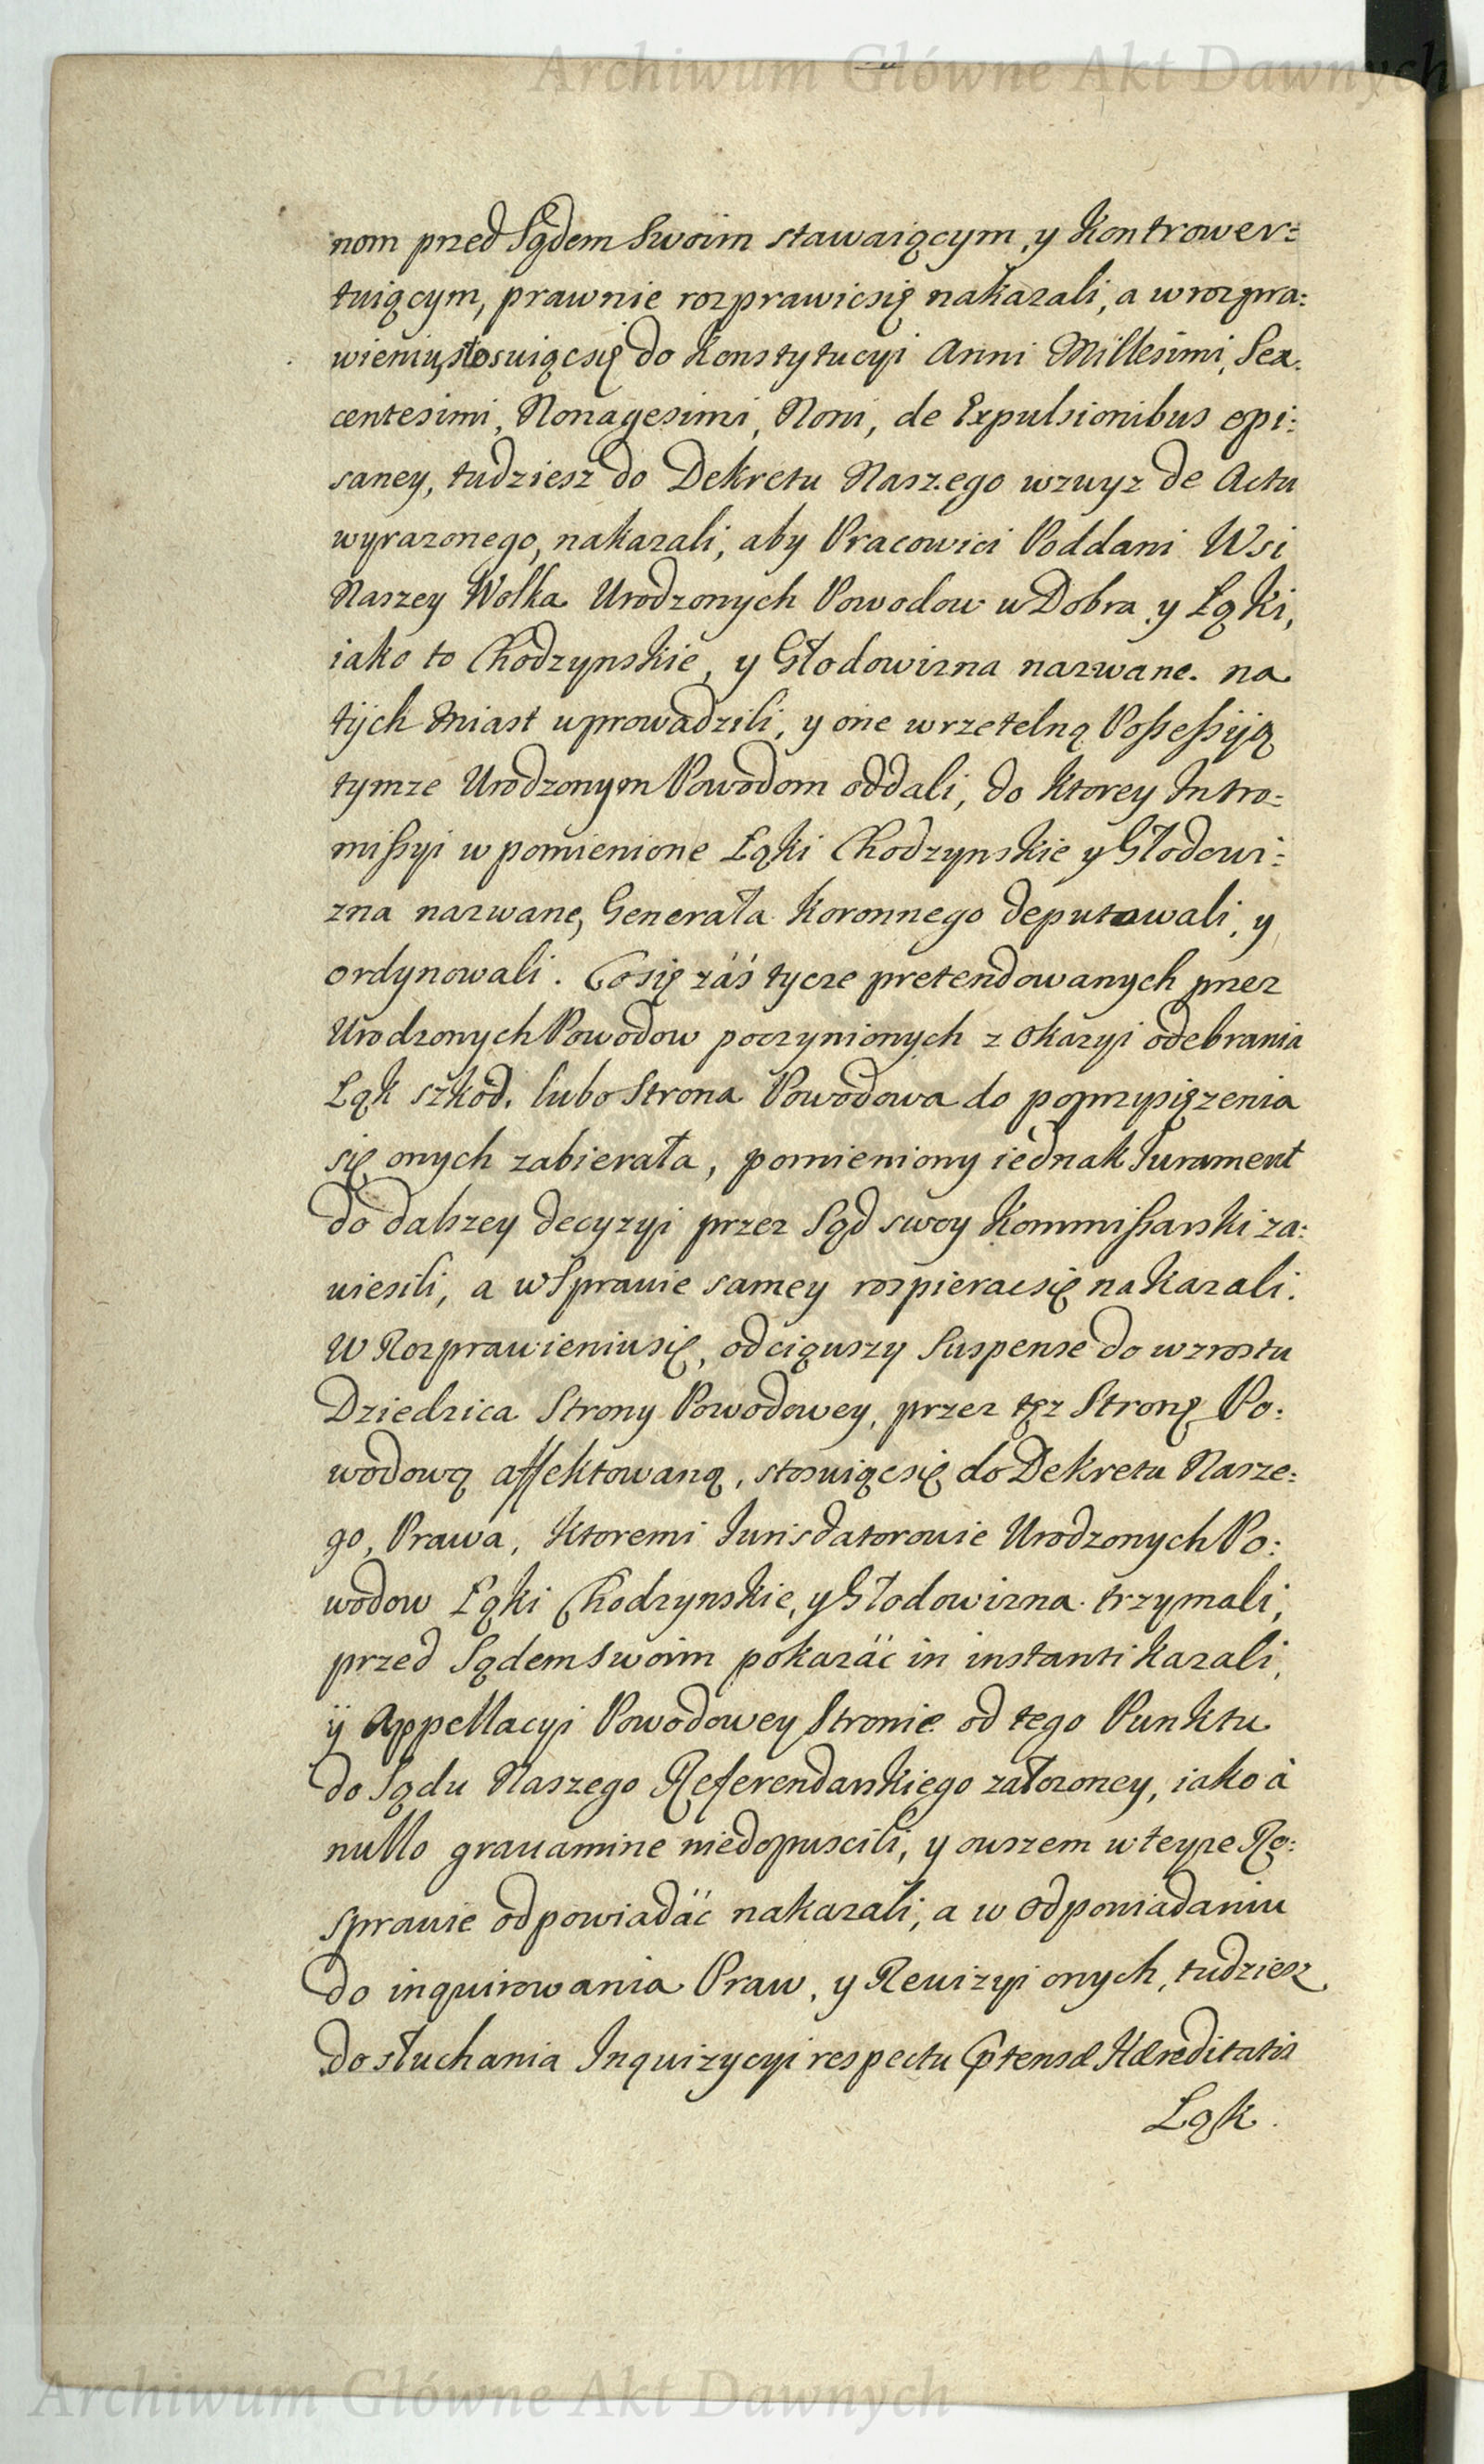 Archiwum Główne Akt Dawnych
nom przed Sądem Swoim stawaiącym, y Kontrower=
tuiącym, prawnie rozprawicsię nakazali, a wrozpra:
wieniu stosuiącsię do Konstytucyi Anni Millesimi, Sex:
centesimi, Nonagesimi, Noni, de Expulsionibus opi:
saney, tudziesz do Dekretu Naszego wzwyz de Actu
wyrazonego, nakazali, aby Pracowici Poddani Wsi
Naszey Wolka Urodzonych Powodow w Dobra y Łąki,
iako to Chodzynskie, y Głodowizna nazwane. na
tych miast uprowadzili, y one wrzetelną Possessyią
tymze Urodzonym Powodom oddali, do ktorey Intro=
missyi w pomienione Łąki Chodzynskie y Głodowi:
zna nazwane, Generała Koronnego deputowali, y
ordynowali. Cosię záś tycze pretendowanych przez
Urodzonych Powodow poczynionych z okazyi odebrania
Łąk szkod. lubo Strona Powodowa do poprzysiężenia
się onych zabierała, pomieniony iednak Jurament
do dalszey decyzyi przez Sąd swoy Kommissarski za:
wiesili, a w Sprawie samey rozpieracsię nakazali.
W Rozprawieniusię, odciąwszy Suspense do wzrostu
Dziedzica Strony Powodowey, przez tęz Stronę Po:
wodową affektowaną, stosuiącsię do Dekretu Nasze:
go, Prawa, ktoremi Jurisdatorowie Urodzonych Po:
wodow Łąki Chodzynskie, y Głodowizna trzymali,
przed Sądem Swoim pokazäć in instanti kazali,
ÿ Appellacyi Powodowey Stronie od tego Punktu
do Sądu Naszego Referendarskiego załozoney, iako à
nullo gravamine niedopuscili, y owszem wteyze Ro:
sprawie odpowiadäć nakazali, a w odpowiadaniu
do inquirowania Praw, y Rewizyi onych, tudziesz
do słuchania Inquizycyi respectu ptensæ Hæreditatis
Łąk.
Archiwum Główne Akt Dawnych